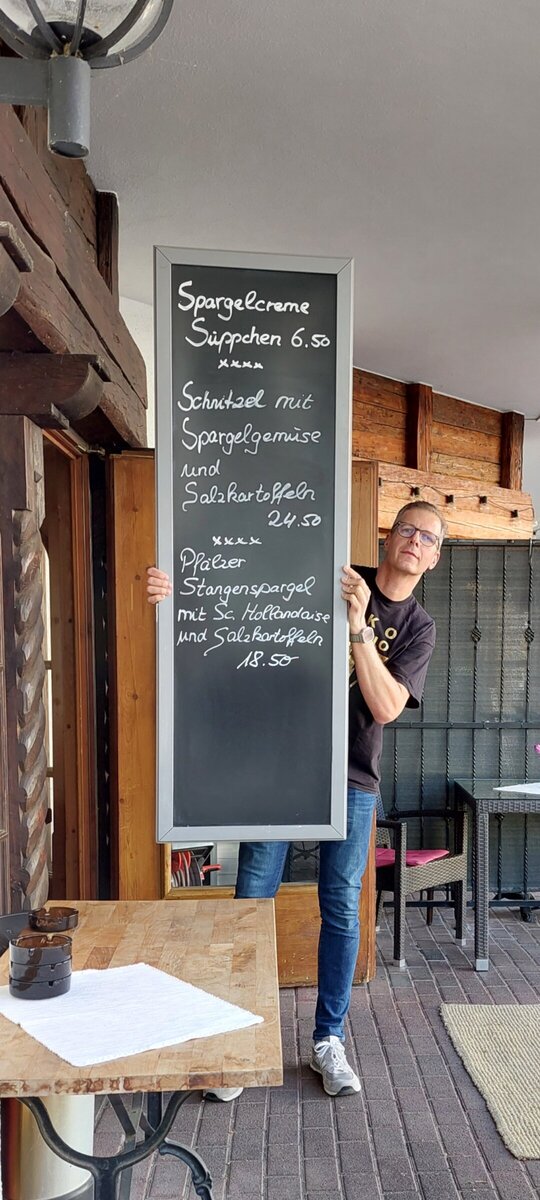 Spargelcreme
Süppchen 6.50
xxxx
Schnitzel mit
Spargelgemüse
und
Salzkartoffeln
24.50
xxxx
Pfälzer
Stangenspargel
mit Sc. Hollandaise
und Salzkartoffeln
18.50